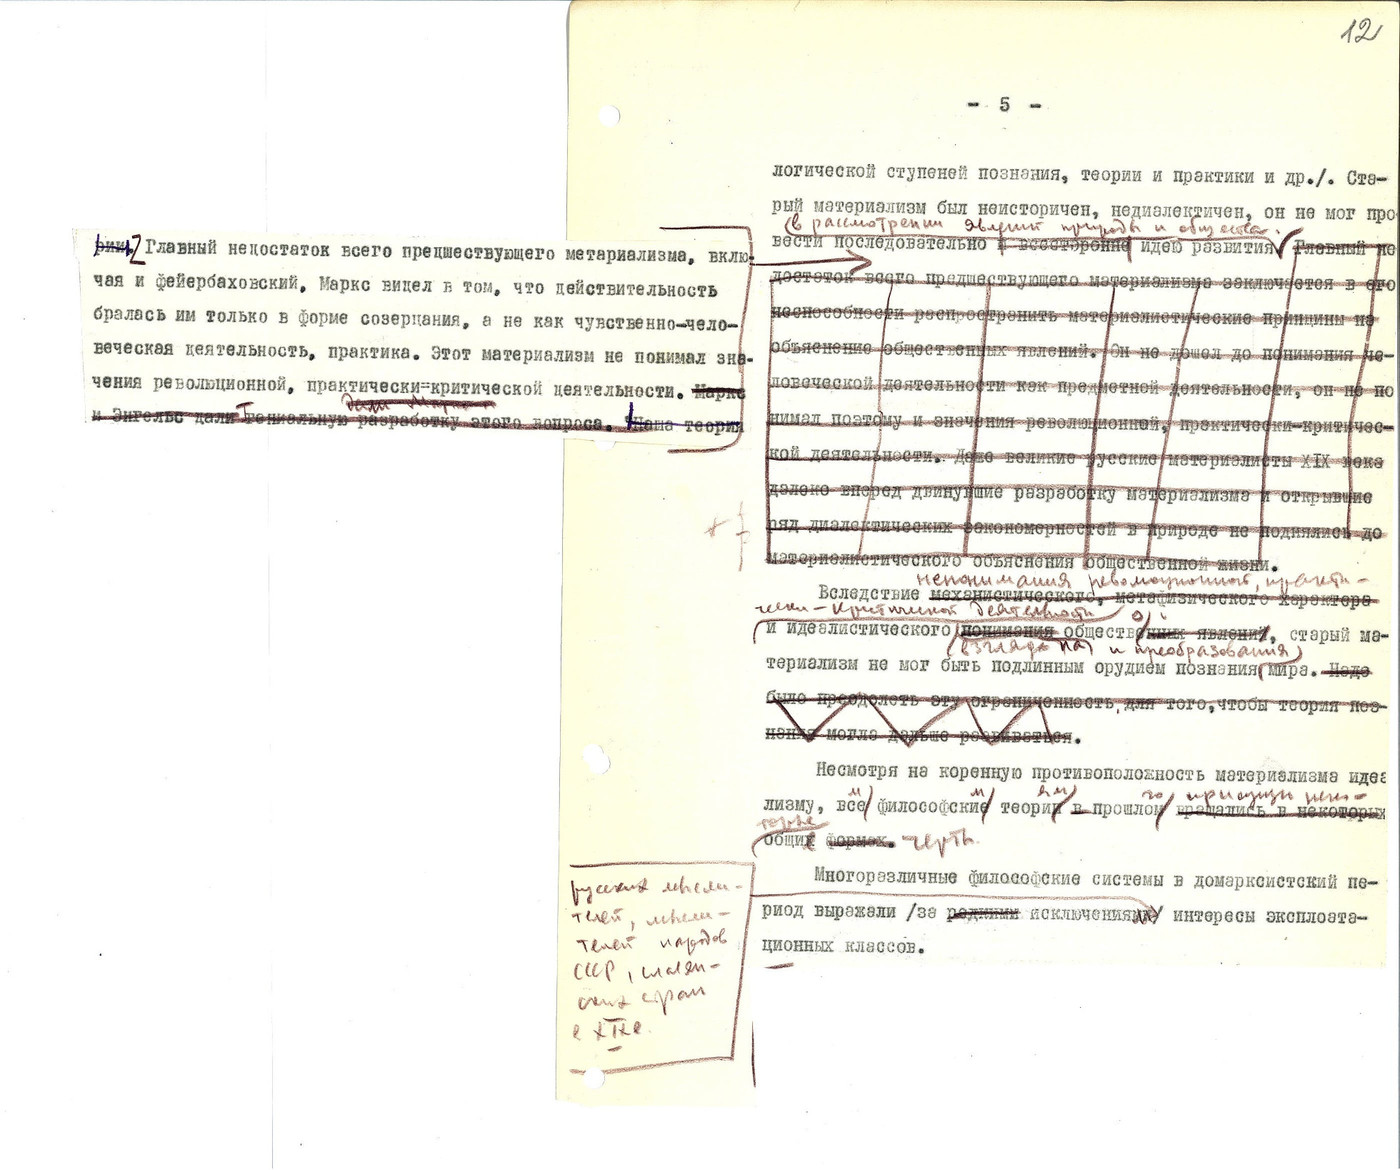 12
- 5 -
логической ступеней познания, теории и практики и др./. Ста-
рый материализм был неисторичен, недиалектичен, он не мог про
(в рассмотрении явлений природы и общества.
вести последовательно и всесторонне идею развития Главный не
достаток всего предшествующего материализма заключается в его
неспособности распространить материалистические принципы на
объяснение общественных явлений. Он не дошел до понимания че-
ловеческой деятельности как предметной деятельности, он не по
нимал поэтому и значения революционной, практически-критичес-
кой деятельности. Даже великие русские материалисты XIX века
далеко вперед двинувшие разработку материализма и открывшие
ряд диалектических закономерностей в природе не поднялись до
материалистического объяснения общественной жизни.
непонимания революционной, практи-
Вследствие механистического, метафизического характера
чески-критической деятельности
и идеалистического понимания общественных явлений, старый ма-
(взгляда на) и преобразования)
териализм не мог быть подлинным орудием познания мира. Надо
было преодолеть эту ограниченность для того, чтобы теория поз-
нания могла дальше развиваться.
Несмотря на коренную противоположность материализма идеа
м м ям го присущи неко-
лизму, все философские теории в прошлом вращались в некоторых
торые
общих формах. черты.
Многоразличные философские системы в домарксистский пе-
риод выражали /за редкими исключениями/ интересы эксплоата-
ционных классов.
рищ, Главный недостаток всего предшествующего метариализма, вклю-
чая и фейербаховский, Маркс видел в том, что действительность
бралась им только в форме созерцания, а не как чувственно-чело-
веческая деятельность, практика. Этот материализм не понимал зна-
чения революционной, практически=критической деятельности. Маркс
и Энгельс дали гениальную разработку этого вопроса. Наша теория
русских мысли-
телей, мысли-
телей народов
СССР, славян-
ских стран
с XIX в.